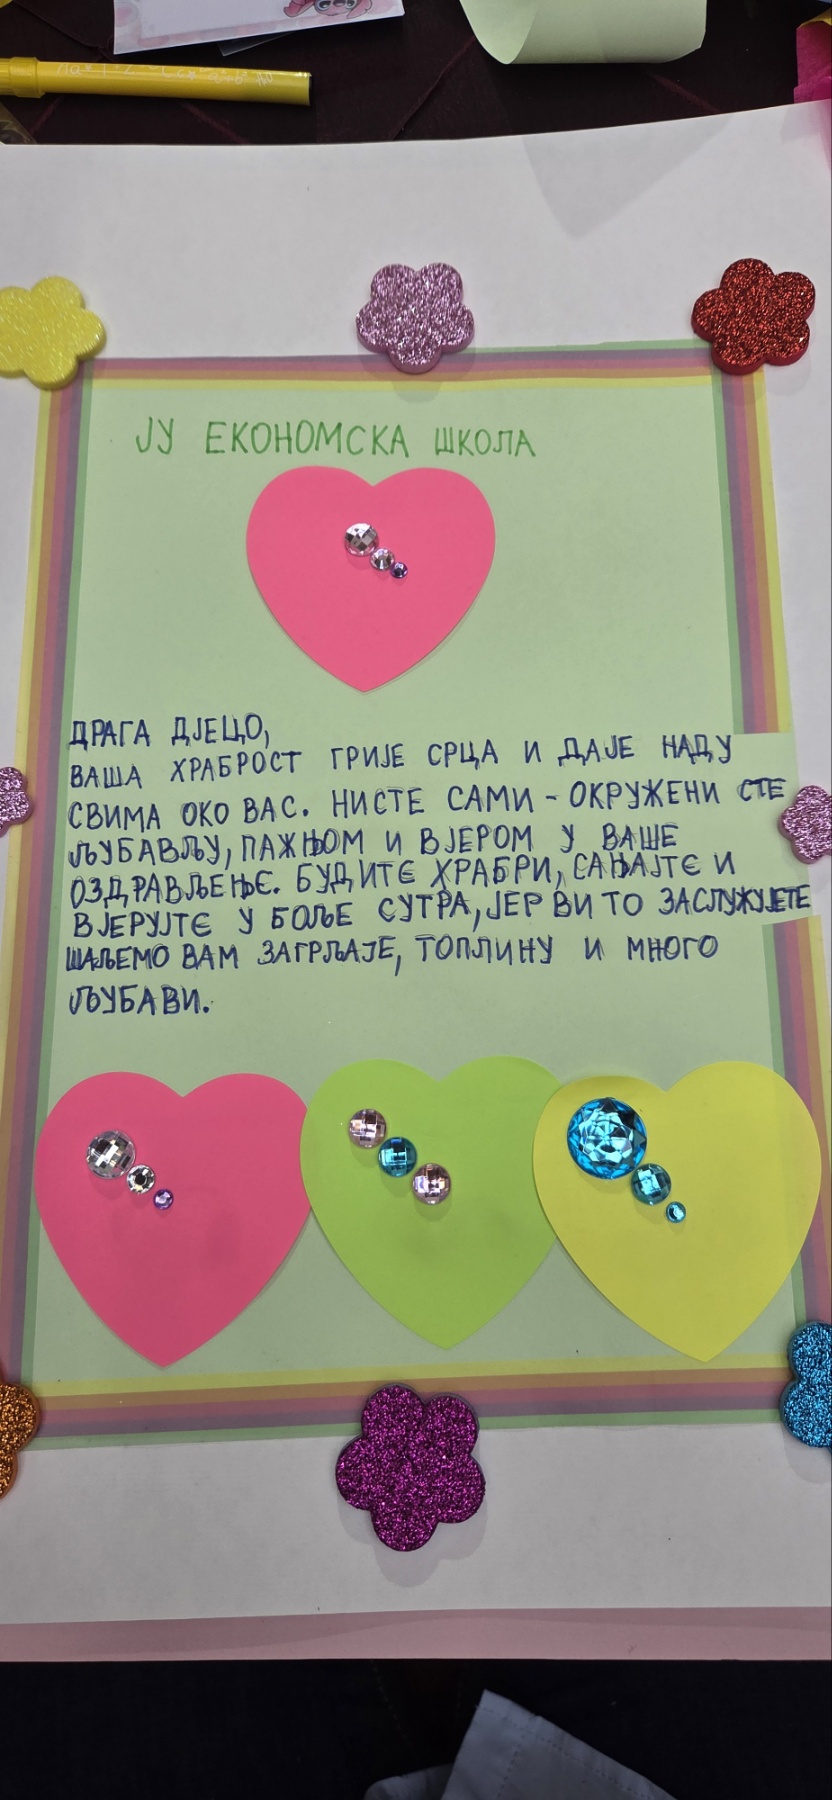 ЈУ ЕКОНОМСКА ШКОЛА
ДРАГА ДЈЕЦО,
ВАША ХРАБРОСТ ГРИЈЕ СРЦА И ДАЈЕ НАДУ
СВИМА ОКО ВАС. НИСТЕ САМИ - ОКРУЖЕНИ СТЕ
ЉУБАВЉУ, ПАЖЊОМ И ВЈЕРОМ У ВАШЕ
ОЗДРАВЉЕЊЕ. БУДИТЕ ХРАБРИ, САЊАЈТЕ И
ВЈЕРУЈТЕ У БОЉЕ СУТРА, ЈЕР ВИ ТО ЗАСЛУЖУЈЕТЕ
ШАЉЕМО ВАМ ЗАГРЉАЈЕ, ТОПЛИНУ И МНОГО
ЉУБАВИ.